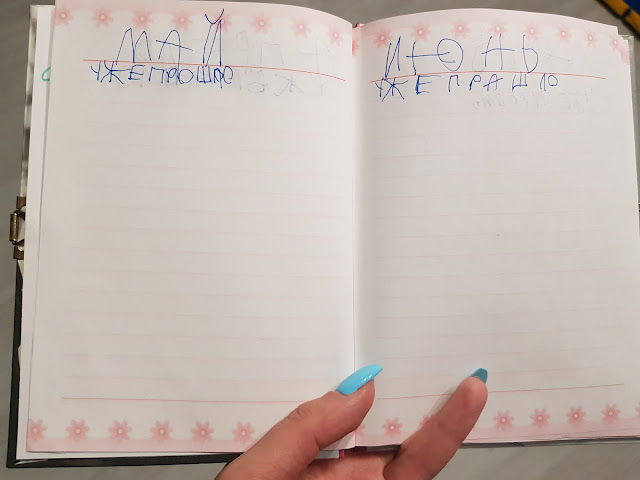 МАЙ
УЖЕ ПРОШЛО
ИЮНЬ
УЖЕ ПРАШЛО